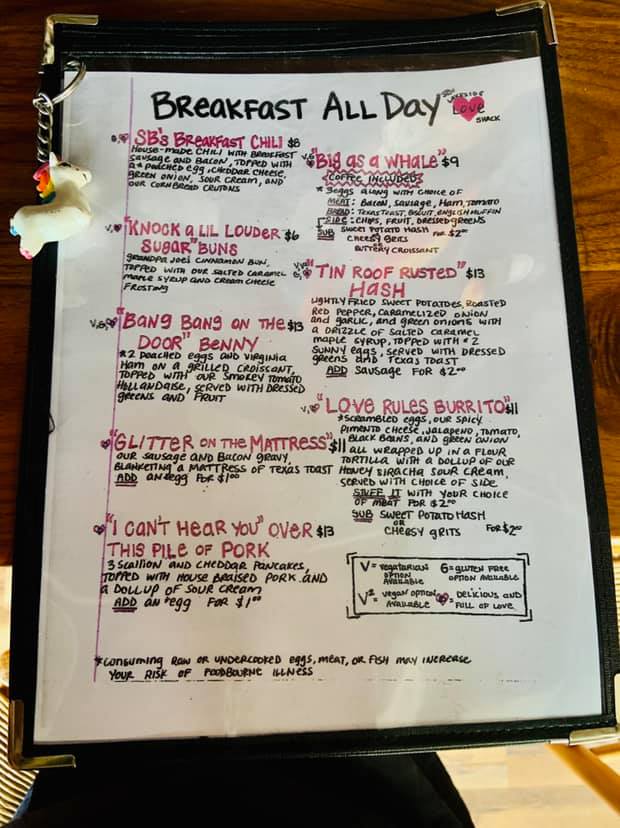 BREAKFAST ALL DAY
LAKESIDE
LOVE
SHACK
SB'S BREAKFAST CHILI $8
HOUSE-MADE CHILI WITH BREAKFAST
SAUSAGE AND BACON, TOPPED WITH
A * POACHED EGG, CHEDDAR CHEESE,
GREEN ONION, SOUR CREAM, AND
OUR CORNBREAD CRUTONS
V, "KNOCK A LIL LOUDER $6
SUGAR" BUNS
GRANDPA JOEL CINNAMON BUN,
TOPPED WITH OUR SALTED CARAMEL
MAPLE SYRUP AND CREAM CHEESE
FROSTING
V, G, "BANG BANG ON THE $13
DOOR" BENNY
*2 POACHED EGGS AND VIRGINIA
HAM ON A GRILLED CROISSANT,
TOPPED WITH OUR SMOKEY TOMATO
HOLLANDAISE, SERVED WITH DRESSED
GREENS AND FRUIT
"GLITTER ON THE MATTRESS" $11
OUR SAUSAGE AND BACON GRAVY,
BLANKETING A MATTRESS OF TEXAS TOAST
ADD AN EGG FOR $1.00
"I CAN'T HEAR YOU" OVER $13
THIS PILE OF PORK
3 SCALLION AND CHEDDAR PANCAKES,
TOPPED WITH HOUSE BRAISED PORK AND
A DOLLUP OF SOUR CREAM
ADD AN *EGG FOR $1.00
"BIG AS A WHALE" $9
COFFEE INCLUDED
*3 EGGS ALONG WITH CHOICE OF
MEAT: BACON, SAUSAGE, HAM, TOMATO
BREAD: TEXAS TOAST, BISCUIT, ENGLISH MUFFIN
SIDE: CHIPS, FRUIT, DRESSED GREENS
SUB SWEET POTATO HASH FOR $2.00
CHEESY GRITS
BUTTERY CROISSANT
"TIN ROOF RUSTED" $13
HASH
LIGHTLY FRIED SWEET POTATOES, ROASTED
RED PEPPER, CARAMELIZED ONION
AND GARLIC, AND GREEN ONIONS WITH
A DRIZZLE OF SALTED CARAMEL
MAPLE SYRUP, TOPPED WITH *2
SUNNY EGGS, SERVED WITH DRESSED
GREENS AND TEXAS TOAST
ADD SAUSAGE FOR $2.00
V, "LOVE RULES BURRITO" $11
*SCRAMBLED EGGS, OUR SPICY
PIMENTO CHEESE, JALAPENO, TOMATO,
BLACK BEANS, AND GREEN ONION
ALL WRAPPED UP IN A FLOUR
TORTILLA WITH A DOLLUP OF OUR
HONEY SIRACHA SOUR CREAM,
SERVED WITH CHOICE OF SIDE
STUFF IT WITH YOUR CHOICE
OF MEAT FOR $2.00
SUB SWEET POTATO HASH
OR
CHEESY GRITS FOR $2.00
V = VEGATARIAN OPTION AVAILABLE
G = GLUTEN FREE OPTION AVAILABLE
V² = VEGAN OPTION AVAILABLE
= DELICIOUS AND FULL OF LOVE
*CONSUMING RAW OR UNDERCOOKED EGGS, MEAT, OR FISH MAY INCREASE
YOUR RISK OF FOODBOURNE ILLNESS